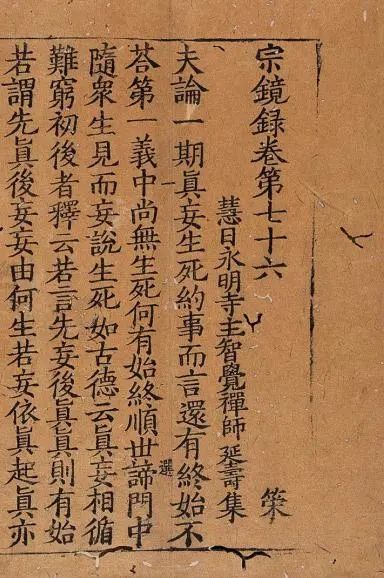 宗鏡録卷第七十六
慧日永明寺主智覺禪師延壽集 策
夫論一期眞妄生死約事而言還有終始不
荅第一義中尚無生死何有始終順世諦門中
隨衆生見而妄說生死如古德云眞妄相循
難窮初後者釋云若言先妄後眞眞則有始
若謂先眞後妄妄由何生若妄依眞起眞亦